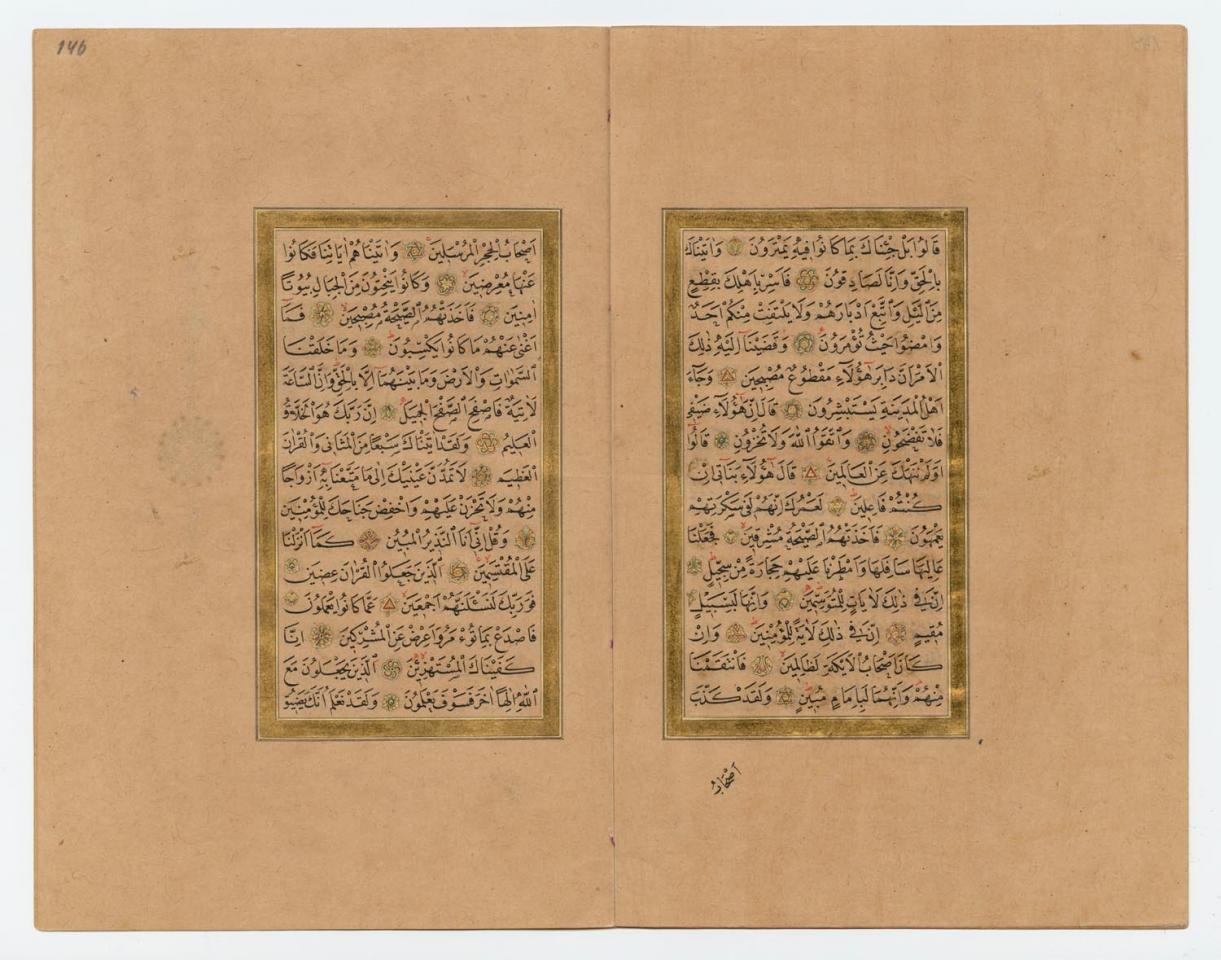 قَالُوا بَلْ جِئْنَاكَ بِمَا كَانُوا فِيهِ يَمْتَرُونَ وَاَتَيْنَاكَ
بِالْحَقِّ وَاِنَّا لَصَادِقُونَ فَاَسْرِ بِاَهْلِكَ بِقِطْعٍ
مِنَ الَّيْلِ وَاتَّبِعْ اَدْبَارَهُمْ وَلَا يَلْتَفِتْ مِنْكُمْ اَحَدٌ
وَامْضُوا حَيْثُ تُؤْمَرُونَ وَقَضَيْنَا اِلَيْهِ ذٰلِكَ
الْاَمْرَ اَنَّ دَابِرَ هٰٓؤُلَاءِ مَقْطُوعٌ مُصْبِحِينَ وَجَاءَ
اَهْلُ الْمَدِينَةِ يَسْتَبْشِرُونَ قَالَ اِنَّ هٰٓؤُلَاءِ ضَيْفِي
فَلَا تَفْضَحُونِ وَاتَّقُوا اللّٰهَ وَلَا تُخْزُونِ قَالُوا
اَوَلَمْ نَنْهَكَ عَنِ الْعَالَمِينَ قَالَ هٰٓؤُلَاءِ بَنَاتِي اِنْ
كُنْتُمْ فَاعِلِينَ لَعَمْرُكَ اِنَّهُمْ لَفِي سَكْرَتِهِمْ
يَعْمَهُونَ فَاَخَذَتْهُمُ الصَّيْحَةُ مُشْرِقِينَ فَجَعَلْنَا
عَالِيَهَا سَافِلَهَا وَاَمْطَرْنَا عَلَيْهِمْ حِجَارَةً مِنْ سِجِّيلٍ
اِنَّ فِي ذٰلِكَ لَاٰيَاتٍ لِلْمُتَوَسِّمِينَ وَاِنَّهَا لَبِسَبِيلٍ
مُقِيمٍ اِنَّ فِي ذٰلِكَ لَاٰيَةً لِلْمُؤْمِنِينَ وَاِنْ
كَانَ اَصْحَابُ الْاَيْكَةِ لَظَالِمِينَ فَانْتَقَمْنَا
مِنْهُمْ وَاِنَّهُمَا لَبِاِمَامٍ مُبِينٍ وَلَقَدْ كَذَّبَ
اَصْحَابُ
146
اَصْحَابُ الْحِجْرِ الْمُرْسَلِينَ وَاٰتَيْنَاهُمْ اٰيَاتِنَا فَكَانُوا
عَنْهَا مُعْرِضِينَ وَكَانُوا يَنْحِتُونَ مِنَ الْجِبَالِ بُيُوتًا
اٰمِنِينَ فَاَخَذَتْهُمُ الصَّيْحَةُ مُصْبِحِينَ فَمَا
اَغْنٰى عَنْهُمْ مَا كَانُوا يَكْسِبُونَ وَمَا خَلَقْنَا
السَّمٰوَاتِ وَالْاَرْضَ وَمَا بَيْنَهُمَا اِلَّا بِالْحَقِّ وَاِنَّ السَّاعَةَ
لَاٰتِيَةٌ فَاصْفَحِ الصَّفْحَ الْجَمِيلَ اِنَّ رَبَّكَ هُوَ الْخَلَّاقُ
الْعَلِيمُ وَلَقَدْ اٰتَيْنَاكَ سَبْعًا مِنَ الْمَثَانِي وَالْقُرْاٰنَ
الْعَظِيمَ لَا تَمُدَّنَّ عَيْنَيْكَ اِلٰى مَا مَتَّعْنَا بِهِ اَزْوَاجًا
مِنْهُمْ وَلَا تَحْزَنْ عَلَيْهِمْ وَاخْفِضْ جَنَاحَكَ لِلْمُؤْمِنِينَ
وَقُلْ اِنِّي اَنَا النَّذِيرُ الْمُبِينُ كَمَا اَنْزَلْنَا
عَلَى الْمُقْتَسِمِينَ الَّذِينَ جَعَلُوا الْقُرْاٰنَ عِضِينَ
فَوَرَبِّكَ لَنَسْـَٔلَنَّهُمْ اَجْمَعِينَ عَمَّا كَانُوا يَعْمَلُونَ
فَاصْدَعْ بِمَا تُؤْمَرُ وَاَعْرِضْ عَنِ الْمُشْرِكِينَ اِنَّا
كَفَيْنَاكَ الْمُسْتَهْزِئِينَ الَّذِينَ يَجْعَلُونَ مَعَ
اللّٰهِ اِلٰهًا اٰخَرَ فَسَوْفَ يَعْلَمُونَ وَلَقَدْ نَعْلَمُ اَنَّكَ يَضِيقُ